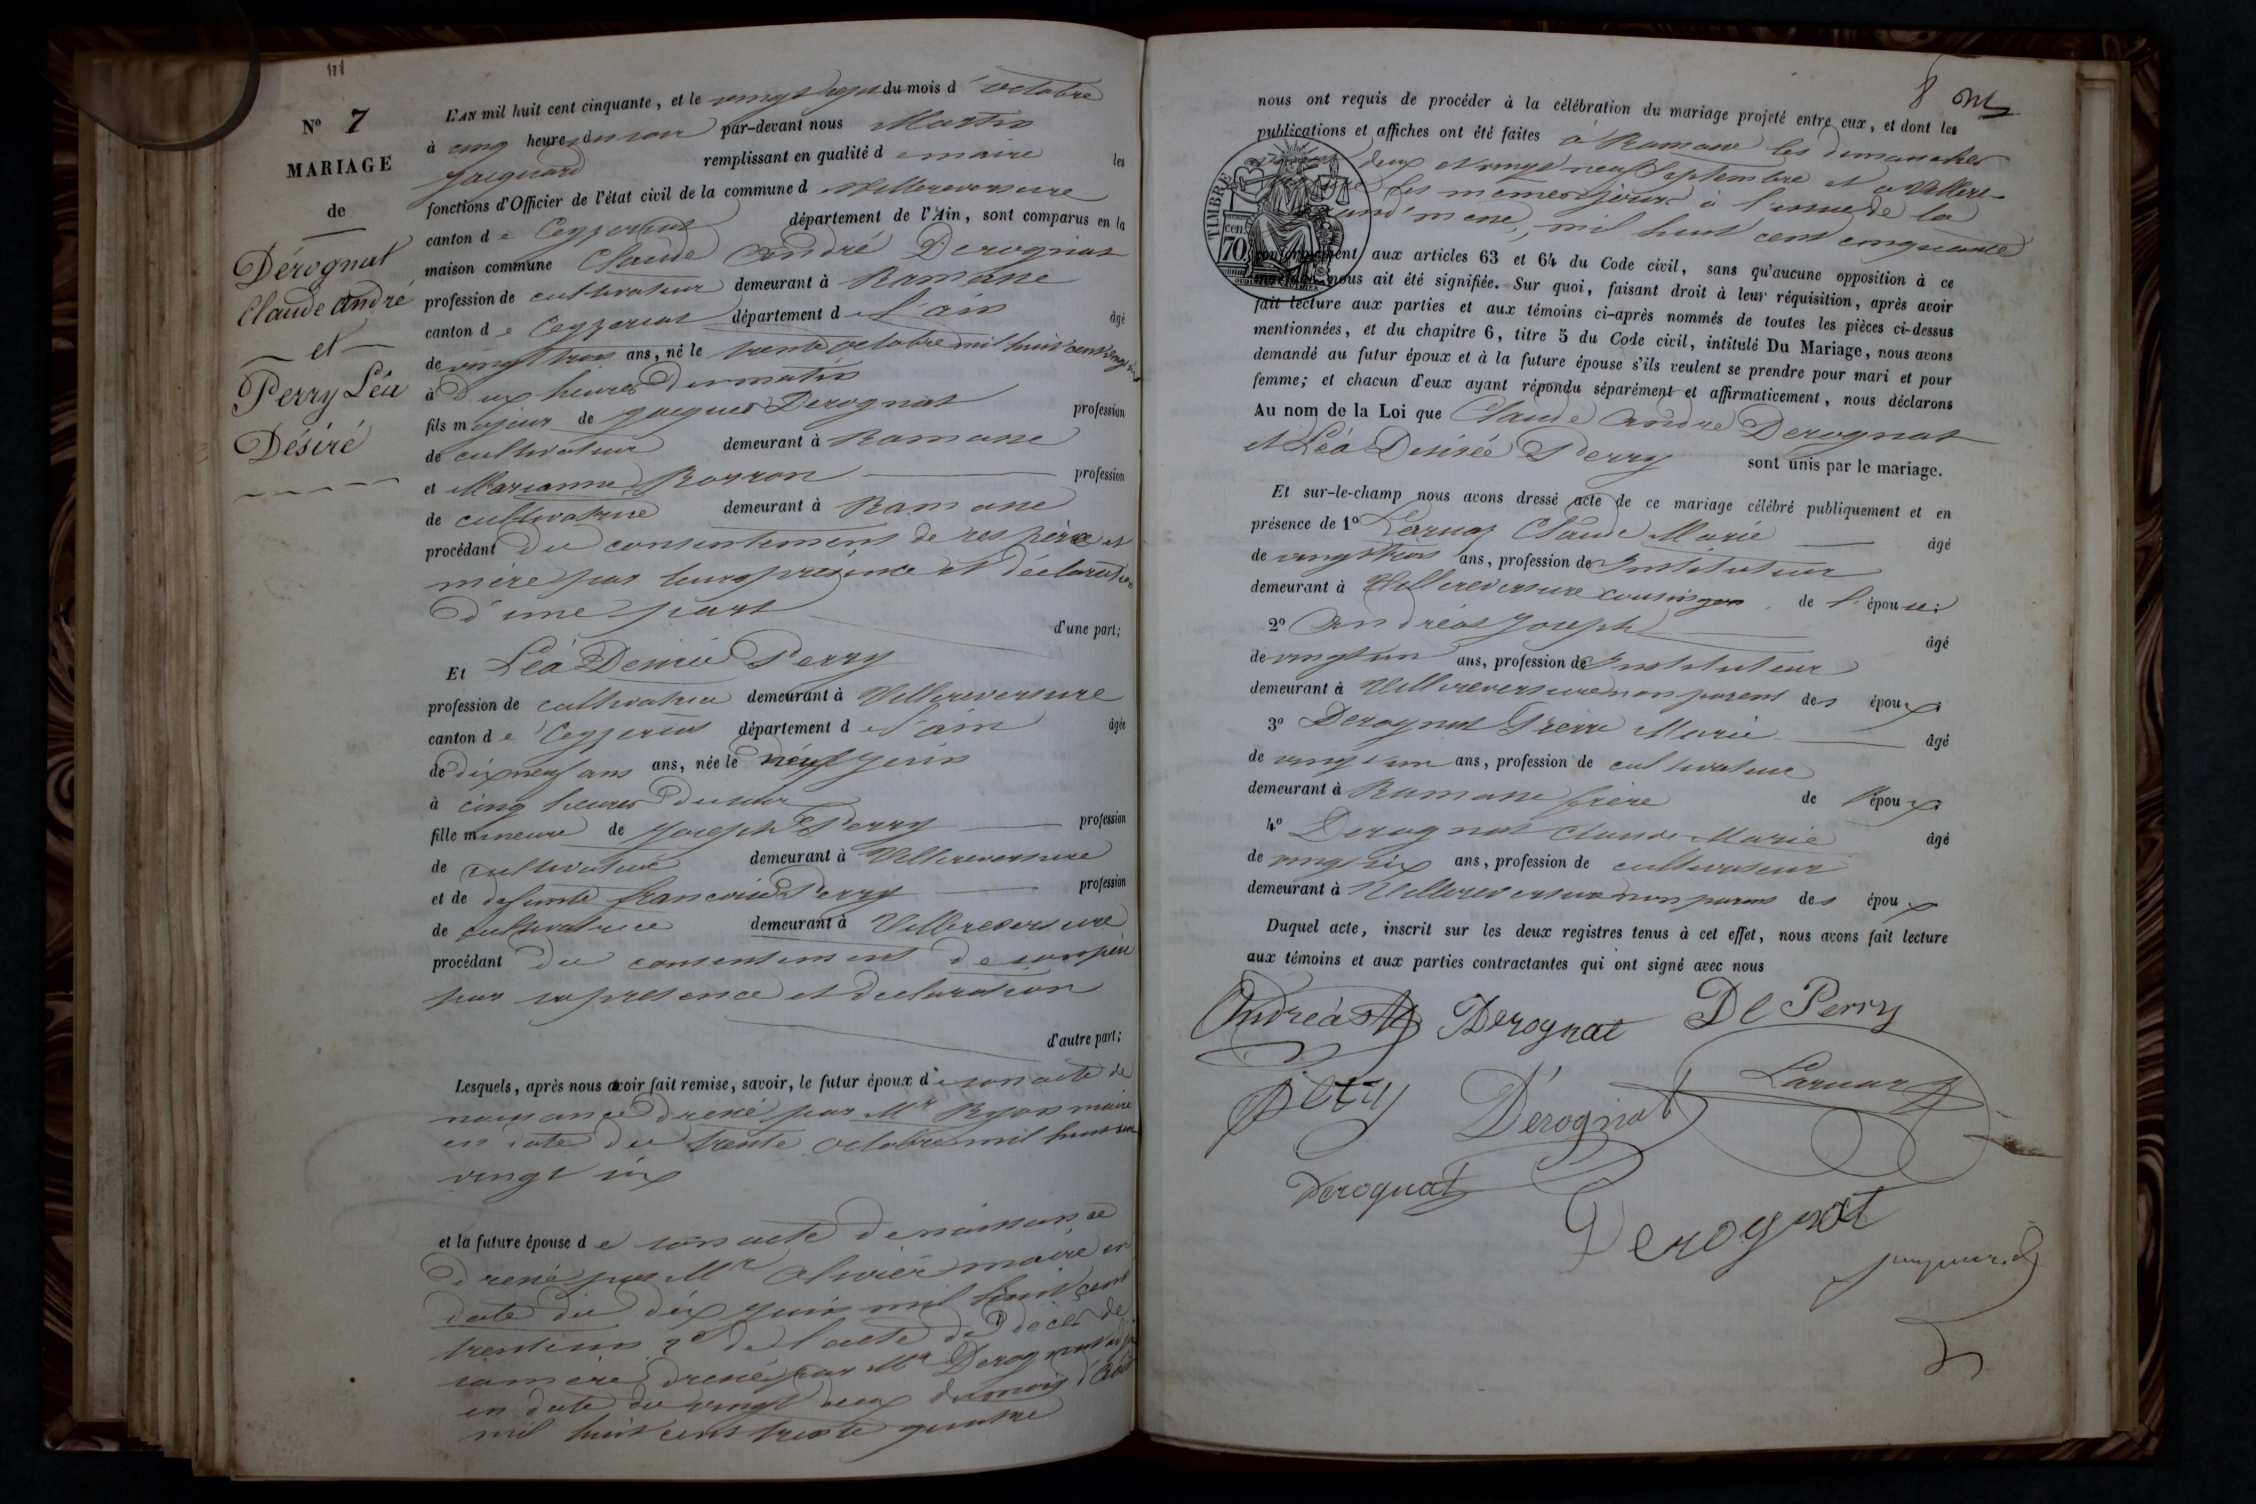 N° 7
MARIAGE
de
Dérognat
Claude André
et
Perry Léa
Désiré
L'AN mil huit cent cinquante, et le vingt sept du mois d'octobre
à cinq heures du soir par-devant nous Martin
Jacquard remplissant en qualité de maire les
fonctions d'Officier de l'état civil de la commune d Villereversure
canton de Ceyzeriat département de l'Ain, sont comparus en la
maison commune Claude André Derognat
profession de cultivateur demeurant à Ramasse
canton de Ceyzeriat département de l'ain âgé
de vingt trois ans, né le trente octobre mil huit cent vingt six
à deux heures du matin
fils majeur de Jacques Derognat profession
de cultivateur demeurant à Ramasse
et Marianne profession
de cultivatrice demeurant à Ramasse
procédant du consentement de ses père et
mère par leurs présence et déclaration
d'une part
d'une part;
Et Léa Desirée Perry
profession de cultivatrice demeurant à Villereversure
canton de Ceyzeriat département de l'ain âgée
de dix neuf ans ans, née le neuf Juin
à cinq heures du soir
fille mineure de Joseph Perry profession
de cultivateur demeurant à Villereversure
et de defunte francoise Perry profession
de cultivatrice demeurant à Villereversure
procédant du consentement de son père
par sa présence et declaration
d'autre part;
Lesquels, après nous avoir fait remise, savoir, le futur époux de son acte de
naissance dressé par Mr maire
en date du trente octobre mil huit cent
vingt six
et la future épouse de son acte de naissance
dressé par Mr Olivier maire en
date du dix juin mil huit cent
trente un 2° de l'acte de décès de
sa mère dressé par Mr Derognat
en date du vingt deux du mois d'Août
mil huit cent trente quatre
8
nous ont requis de procéder à la célébration du mariage projeté entre eux, et dont les
publications et affiches ont été faites à Ramasse les dimanches
vingt deux et vingt neuf Septembre et a Villere-
les memes jours à l'issue de la
grand' messe, mil huit cent cinquante
TIMBRE
70 cen.
conformément aux articles 63 et 64 du Code civil, sans qu'aucune opposition à ce
mariage nous ait été signifiée. Sur quoi, faisant droit à leur réquisition, après avoir
fait lecture aux parties et aux témoins ci-après nommés de toutes les pièces ci-dessus
mentionnées, et du chapitre 6, titre 5 du Code civil, intitulé Du Mariage, nous avons
demandé au futur époux et à la future épouse s'ils veulent se prendre pour mari et pour
femme; et chacun d'eux ayant répondu séparément et affirmativement, nous déclarons
Au nom de la Loi que Claude Andre Derognat
et Léa Desirée Perry sont unis par le mariage.
Et sur-le-champ nous avons dressé acte de ce mariage célébré publiquement et en
présence de 1° Larnay Claude Marie âgé
de vingt trois ans, profession de Instituteur
demeurant à Villereversure cousin de l'épouse;
2° Andréas Joseph âgé
de vingt un ans, profession de Instituteur
demeurant à Villereversure non parent des époux;
3° Derognat Pierre Marie âgé
de vingt un ans, profession de cultivateur
demeurant à Ramasse frère de l'époux;
4° Derognat Claude Marie âgé
de vingt six ans, profession de cultivateur
demeurant à Villereversure non parent des époux
Duquel acte, inscrit sur les deux registres tenus à cet effet, nous avons fait lecture
aux témoins et aux parties contractantes qui ont signé avec nous
Andréas Derognat D L Perry
Pery Dérognat Larnay
Derognat
Derognat